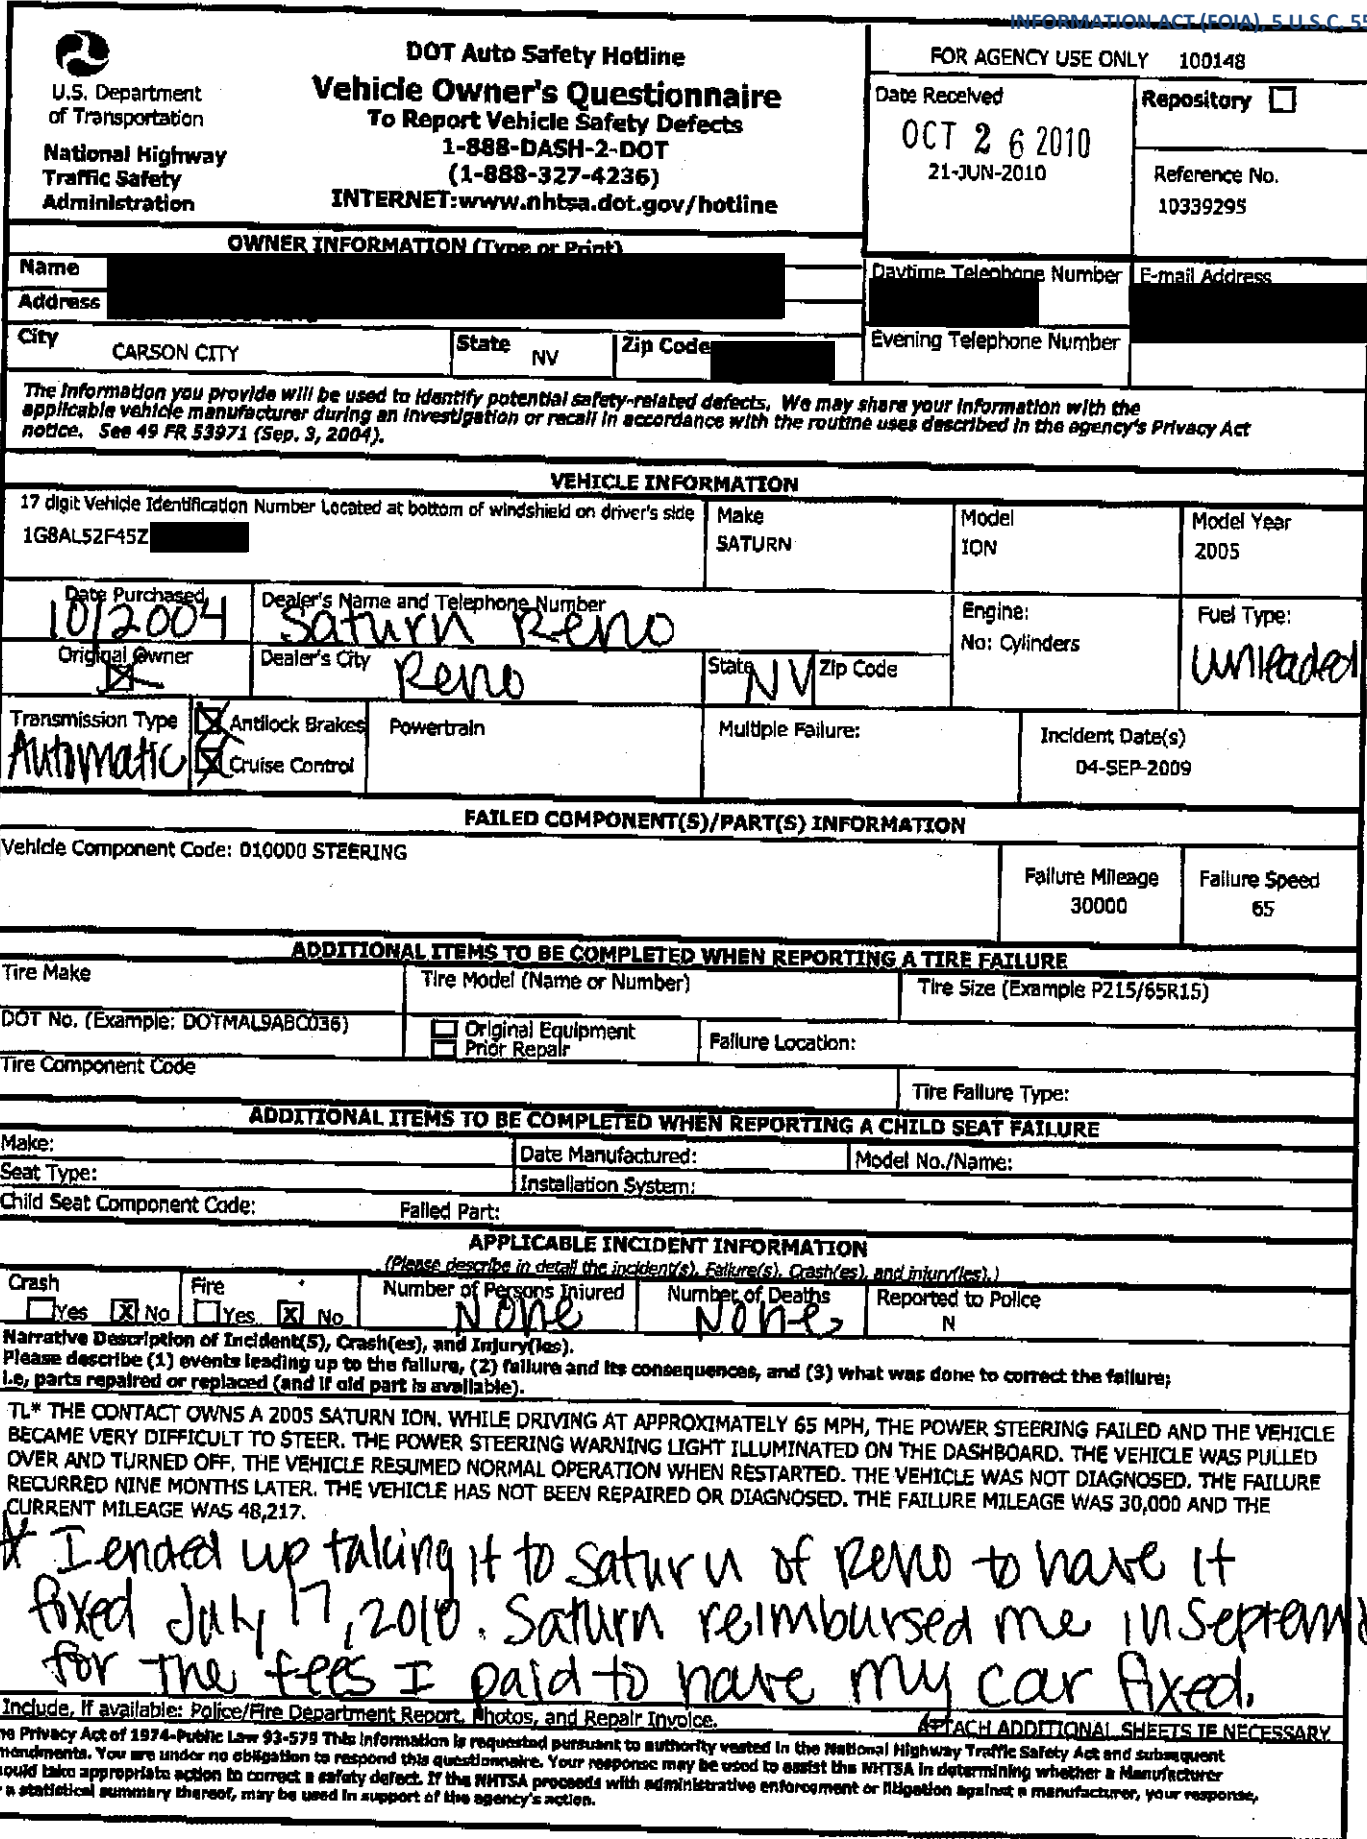 INFORMATION ACT (FOIA), 5 U.S.C. 55
U.S. Department
of Transportation
National Highway
Traffic Safety
Administration
DOT Auto Safety Hotline
Vehicle Owner's Questionnaire
To Report Vehicle Safety Defects
1-888-DASH-2-DOT
(1-888-327-4236)
INTERNET:www.nhtsa.dot.gov/hotline
FOR AGENCY USE ONLY 100148
Date Received
OCT 26 2010
21-JUN-2010
Repository
Reference No.
10339295
OWNER INFORMATION (Type or Print)
Name
Address
Daytime Telephone Number
E-mail Address
City
CARSON CITY
State
NV
Zip Code
Evening Telephone Number
The information you provide will be used to identify potential safety-related defects. We may share your information with the
applicable vehicle manufacturer during an investigation or recall in accordance with the routine uses described in the agency's Privacy Act
notice. See 49 FR 53971 (Sep. 3, 2004).
VEHICLE INFORMATION
17 digit Vehicle Identification Number Located at bottom of windshield on driver's side
1G8AL52F45Z
Make
SATURN
Model
ION
Model Year
2005
Date Purchased
10/2004
Dealer's Name and Telephone Number
Saturn Reno
Engine:
No: Cylinders
Fuel Type:
unleaded
Original Owner
Dealer's City
Reno
State
NV
Zip Code
Transmission Type
Automatic
Antilock Brakes
Cruise Control
Powertrain
Multiple Failure:
Incident Date(s)
04-SEP-2009
FAILED COMPONENT(S)/PART(S) INFORMATION
Vehicle Component Code: 010000 STEERING
Failure Mileage
30000
Failure Speed
65
ADDITIONAL ITEMS TO BE COMPLETED WHEN REPORTING A TIRE FAILURE
Tire Make
Tire Model (Name or Number)
Tire Size (Example P215/65R15)
DOT No. (Example: DOTMAL9ABC036)
Original Equipment
Prior Repair
Failure Location:
Tire Component Code
Tire Failure Type:
ADDITIONAL ITEMS TO BE COMPLETED WHEN REPORTING A CHILD SEAT FAILURE
Make:
Date Manufactured:
Model No./Name:
Seat Type:
Installation System:
Child Seat Component Code:
Failed Part:
APPLICABLE INCIDENT INFORMATION
(Please describe in detail the incident(s), Failure(s), Crash(es), and injury(ies).)
Crash
Yes X No
Fire
Yes X No
Number of Persons Injured
None
Number of Deaths
None
Reported to Police
N
Narrative Description of Incident(S), Crash(es), and Injury(ies).
Please describe (1) events leading up to the failure, (2) failure and its consequences, and (3) what was done to correct the failure;
i.e, parts repaired or replaced (and if old part is available).
TL* THE CONTACT OWNS A 2005 SATURN ION. WHILE DRIVING AT APPROXIMATELY 65 MPH, THE POWER STEERING FAILED AND THE VEHICLE
BECAME VERY DIFFICULT TO STEER. THE POWER STEERING WARNING LIGHT ILLUMINATED ON THE DASHBOARD. THE VEHICLE WAS PULLED
OVER AND TURNED OFF. THE VEHICLE RESUMED NORMAL OPERATION WHEN RESTARTED. THE VEHICLE WAS NOT DIAGNOSED. THE FAILURE
RECURRED NINE MONTHS LATER. THE VEHICLE HAS NOT BEEN REPAIRED OR DIAGNOSED. THE FAILURE MILEAGE WAS 30,000 AND THE
CURRENT MILEAGE WAS 48,217.
* I ended up taking it to Saturn of Reno to have it
fixed July 17, 2010. Saturn reimbursed me in Septemb
for the fees I paid to have my car fixed.
Include, if available: Police/Fire Department Report, Photos, and Repair Invoice.
ATTACH ADDITIONAL SHEETS IF NECESSARY
he Privacy Act of 1974-Public Law 93-579 This information is requested pursuant to authority vested in the National Highway Traffic Safety Act and subsequent
mendments. You are under no obligation to respond this questionnaire. Your response may be used to assist the NHTSA in determining whether a Manufacturer
ould take appropriate action to correct a safety defect. If the NHTSA proceeds with administrative enforcement or litigation against a manufacturer, your response,
r a statistical summary thereof, may be used in support of the agency's action.